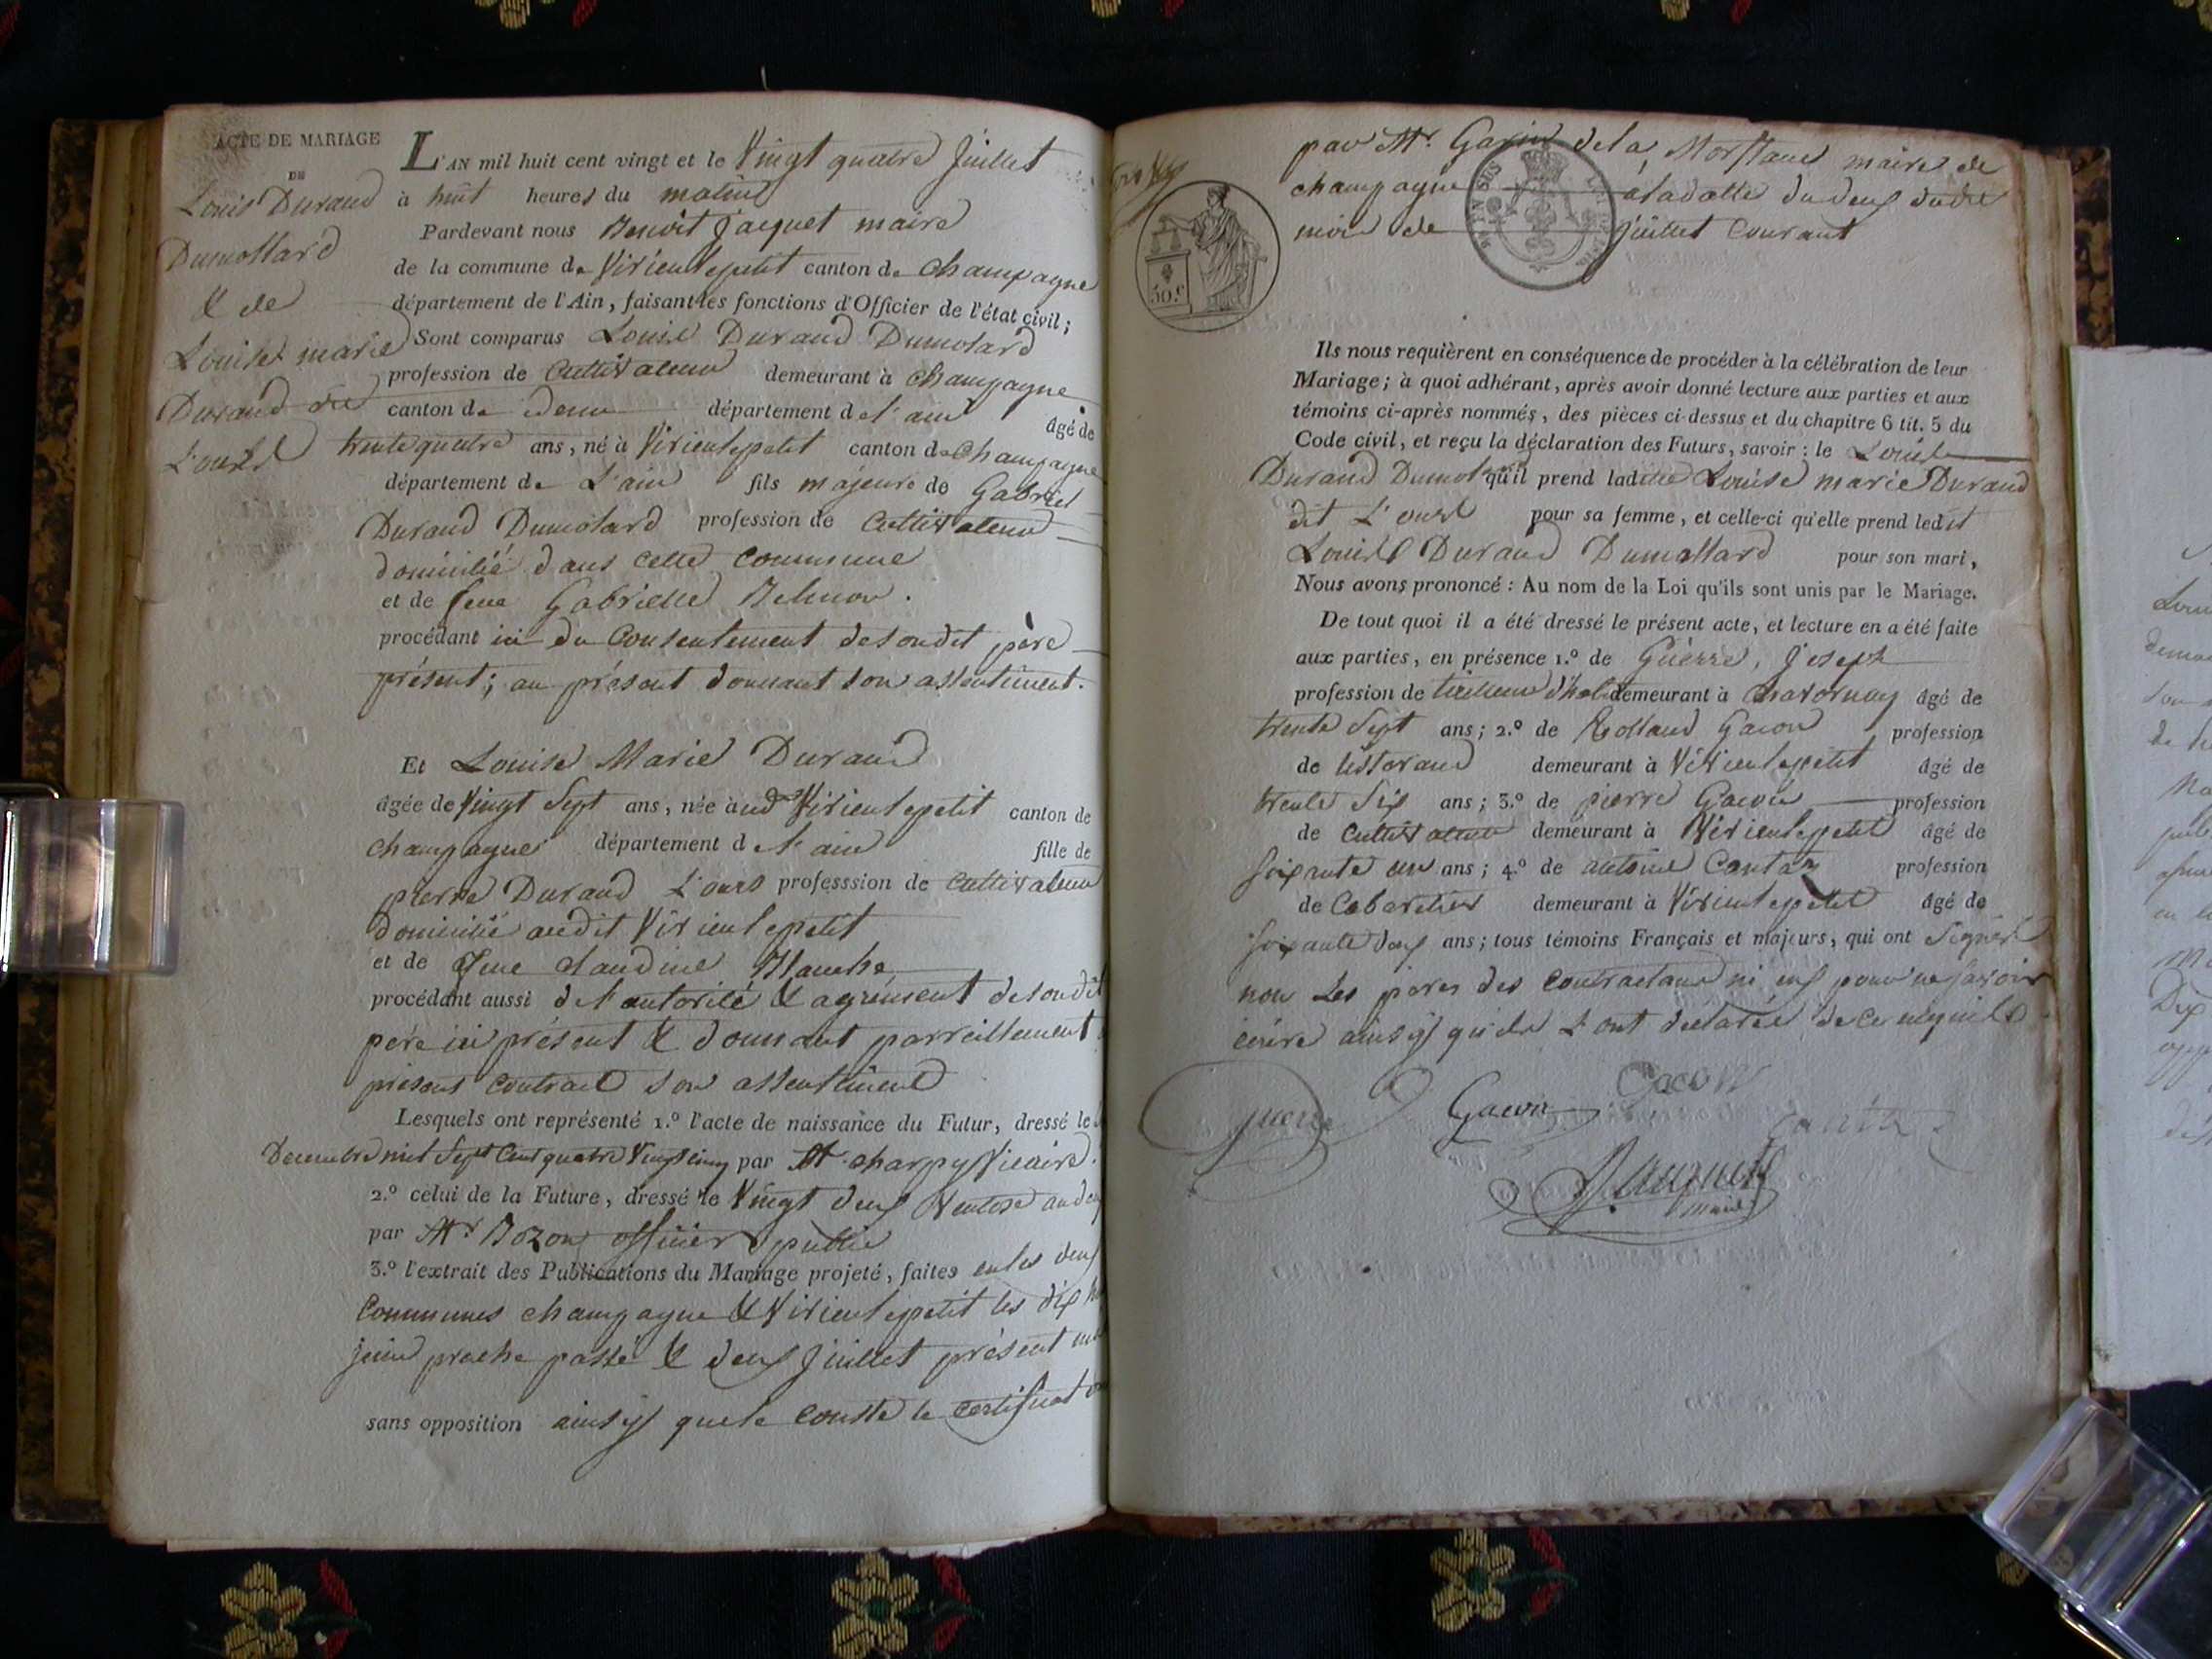 ACTE DE MARIAGE
DE
Louis Durand
Dumollard
& de
Louise marie
Durand dit
L'ours
L'AN mil huit cent vingt et le Vingt quatre Juillet
à huit heures du matin
Pardevant nous Benoît Jacquet maire
de la commune de Virieulepetit canton de Champagne
département de l'Ain, faisant les fonctions d'Officier de l'état civil;
Sont comparus Louis Durand Dumolard
profession de Cultivateur demeurant à Champagne
canton de département de l'ain âgé de
trente quatre ans, né à Virieulepetit canton de Champagne
département de L'ain fils majeure de Gabriel
Durand Dumolard profession de Cultivateur
domicilié dans cette Commune
et de feue Gabrielle
procédant ici du Consentement de son dit père
présent; au présent donnant son assentiment.
Et Louise Marie Durand
âgée de Vingt Sept ans, née à Virieulepetit canton de
Champagne département de l'ain fille de
pierre Durand L'ours professsion de Cultivateur
domicilié audit Virieulepetit
et de feue claudine Blanche
procédant aussi de l'autorité & agrément de son dit
père ici présent & donnant parreillement
présent contract son assentiment
Lesquels ont représenté 1.º l'acte de naissance du Futur, dressé le
Decembre mil Sept Cent quatre Vingt cinq par Mr charpy Vicaire.
2.º celui de la Future, dressé le Vingt deux Ventose an deux
par Mr Bozon officier public
3.º l'extrait des Publications du Mariage projeté, faites en les deux
Communes champagne & Virieulepetit les dix
juin proche passé & deux Juillet présent
sans opposition ainsy que le Conste le certificat
par Mr. Garin dela Morflans maire de
champagne à la datte du deux dudit
mois de juillet Courant
50.c
Ils nous requièrent en conséquence de procéder à la célébration de leur
Mariage; à quoi adhérant, après avoir donné lecture aux parties et aux
témoins ci-après nommés, des pièces ci-dessus et du chapitre 6 tit. 5 du
Code civil, et reçu la déclaration des Futurs, savoir: le Louis
Durand Dumolard qu'il prend ladite Louise marie Durand
dit L'ours pour sa femme, et celle-ci qu'elle prend ledit
Louis Durand Dumollard pour son mari,
Nous avons prononcé: Au nom de la Loi qu'ils sont unis par le Mariage.
De tout quoi il a été dressé le présent acte, et lecture en a été faite
aux parties, en présence 1.º de Guerre, Joseph
profession de tailleur d'habit demeurant à Chavornay âgé de
trente Sept ans; 2.º de Rolland Gacon profession
de tisserand demeurant à Virieulepetit âgé de
trente Six ans; 3.º de pierre Gacon profession
de Cultivateur demeurant à Virieulepetit âgé de
soixante un ans; 4.º de antoine Cantaz profession
de Cabaretier demeurant à Virieulepetit âgé de
soixante deux ans; tous témoins Français et majeurs, qui ont Signés
non Les pères des Contractans ni eux pour ne savoir
écrire ainsy qu'ils L'ont déclarés de ce requis
guerre Gacon Gacon
Jacquet
maire